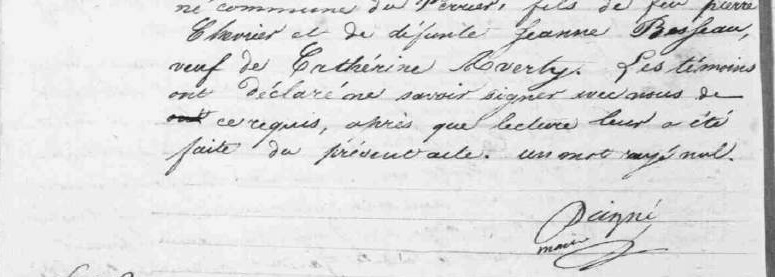 né commune du Perrier, fils de feu pierre
Chevrier et de défunte Jeanne Besseau,
veuf de Cathérine Averty. Les témoins
ont déclaré ne savoir signer avec nous de
ce requis, après que lecture leur a été
faite du présent acte. un mot rayé nul.
Daigné
maire